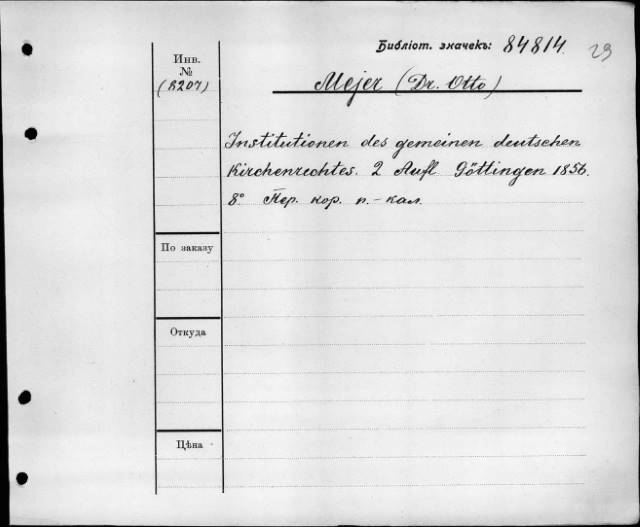 Библіот. значекъ: 84814. 23
Инв.
№
(8207)
Mejer (Dr. Otto)
Institutionen des gemeinen deutschen
Kirchenrechtes. 2 Aufl Göttingen 1856.
8° Пер. кор. п.-кал.
По заказу
Откуда
Цѣна